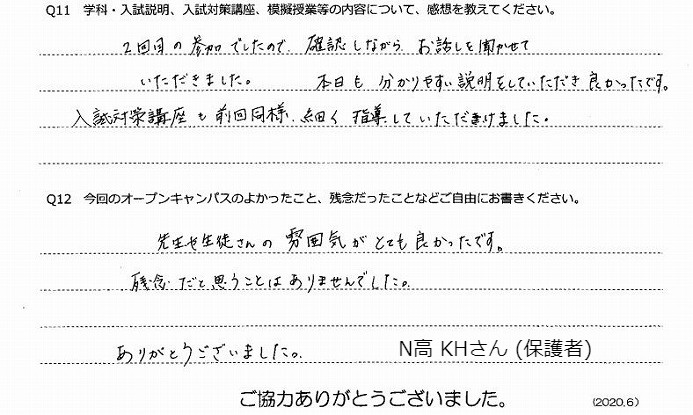 Q11 学科・入試説明、入試対策講座、模擬授業等の内容について、感想を教えてください。
2回目の参加でしたので、確認しながら お話しを聞かせて
いただきました。 本日も 分かりやすい説明をしていただき 良かったです。
入試対策講座も前回同様、細く 指導していただきけました。
Q12 今回のオープンキャンパスのよかったこと、残念だったことなどご自由にお書きください。
先生や生徒さんの 雰囲気がとても良かったです。
残念だと思うことはありませんでした。
ありがとうございました。 N高 KHさん (保護者)
ご協力ありがとうございました。 (2020.6)